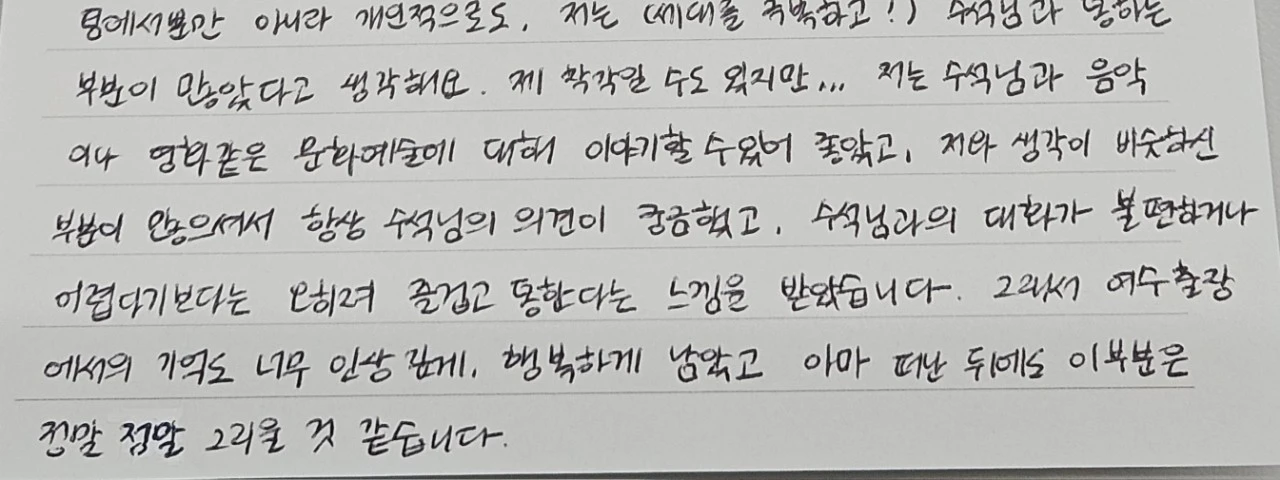 팀에서뿐만 아니라 개인적으로도, 저는 (세대를 극복하고!) 수석님과 통하는
부분이 많았다고 생각해요. 제 착각일 수도 있지만... 저는 수석님과 음악
이나 영화같은 문화예술에 대해 이야기할 수있어 좋았고, 저와 생각이 비슷하신
부분이 많으셔서 항상 수석님의 의견이 궁금했고, 수석님과의 대화가 불편하거나
어렵다기보다는 오히려 즐겁고 통한다는 느낌을 받았습니다. 그래서 여수출장
에서의 기억도 너무 인상 깊게, 행복하게 남았고 아마 떠난 뒤에도 이부분은
정말 정말 그리울 것 같습니다.